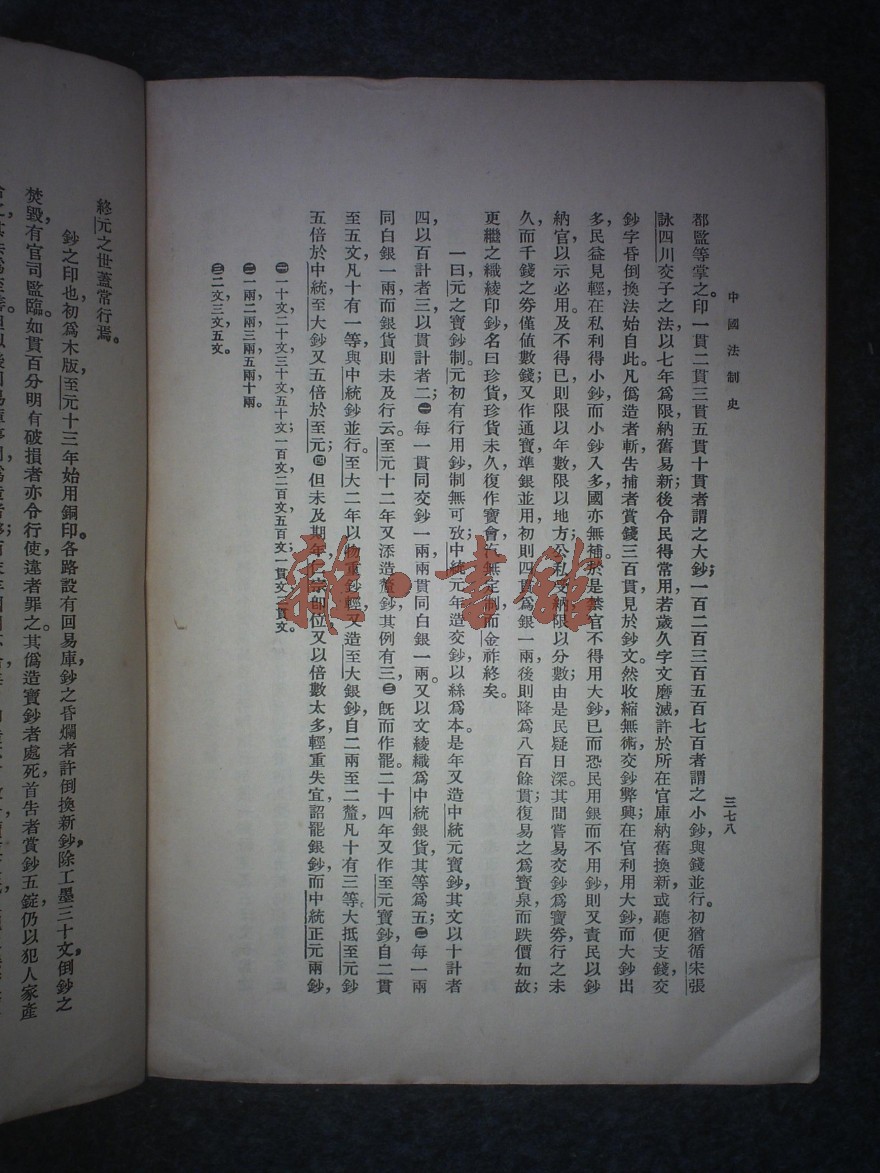 中國法制史
三七八
都監等掌之。印一貫二貫三貫五貫十貫者謂之大鈔；一百二百三百五百七百者謂之小鈔，與錢並行。初猶循宋張
詠四川交子之法，以七年爲限，納舊易新；後令民得常用，若歲久字文磨滅，許於所在官庫納舊換新，或聽便支錢，交
鈔字昏倒換法始自此。凡僞造者斬，告捕者賞錢三百貫，見於鈔文。然收縮無術，交鈔弊興；在官利用大鈔，而大鈔出
多，民益見輕，在私利得小鈔，而小鈔入多，國亦無補，於是禁官不得用大鈔，已而恐民用銀而不用鈔，則又責民以鈔
納官，以示必用。及不得已，則限以年數，限以地方，公私受納，限以分數；由是民疑日深。其間嘗易交鈔爲寶券，行之未
久，而千錢之券僅值數錢；又作通寶，準銀並用，初則四貫爲銀一兩，後則降爲八百餘貫；復易之爲寶泉，而跌價如故；
更繼之織綾印鈔，名曰珍貨，珍貨未久，復作寶會，迄無定制，而金祚終矣。
一曰，元之寶鈔制。元初有行用鈔，制無可攷；中統元年造交鈔，以絲爲本。是年又造中統元寶鈔，其文以十計者
四，以百計者三，以貫計者二；㊀每一貫同交鈔一兩，兩貫同白銀一兩。又以文綾織爲中統銀貨，其等爲五；㊁每一兩
同白銀一兩，而銀貨則未及行云。至元十二年又添造釐鈔，其例有三，㊂旣而作罷。二十四年又作至元寶鈔，自二貫
至五文，凡十有一等，與中統鈔並行。至大二年以物重鈔輕，又造至大銀鈔，自二兩至二釐，凡十有三等。大抵至元鈔
五倍於中統，至大鈔又五倍於至元；㊃但未及期年，仁宗卽位，又以倍數太多，輕重失宜，詔罷銀鈔，而中統正元兩鈔，
㊀一十文，二十文，三十文，五十文；一百文，二百文，五百文；一貫文，二貫文。
㊁一兩，二兩，三兩，五兩，十兩。
㊂二文，三文，五文。
終元之世，蓋常行焉。
鈔之印也，初爲木版，至元十三年始用銅印。各路設有回易庫，鈔之昏爛者，許倒換新鈔，除工墨三十文，倒鈔之
焚毀，有官司監臨。如貫百分明，有破損者亦令行使，違者罪之。其僞造寶鈔者處死，首告者賞鈔五錠，仍以犯人家產
雜·書館